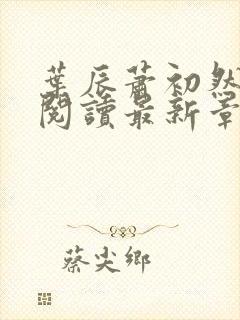 葉辰蕭初然
閱讀最新章
蔡尖鄉